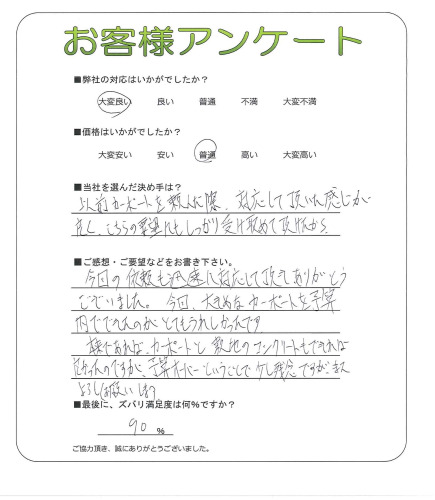 お客様アンケート
■弊社の対応はいかがでしたか？
大変良い 良い 普通 不満 大変不満
■価格はいかがでしたか？
大変安い 安い 普通 高い 大変高い
■当社を選んだ決め手は？
以前カーポートを頼んだ際、対応して頂いた感じが
良く、こちらの要望にもしっかり受け取めて頂けたから。
■ご感想・ご要望などをお書き下さい。
今回の依頼も迅速に対応して頂きありがとう
ございました。今回、大きめなカーポートを予算
内でできたのがとてもうれしかったです
であれば、カーポートと敷地のコンクリートもできれば
よかったのですが、予算オーバーということで少し残念ですが、また
よろしくお願いします
■最後に、ズバリ満足度は何％ですか？
90 ％
ご協力頂き、誠にありがとうございました。